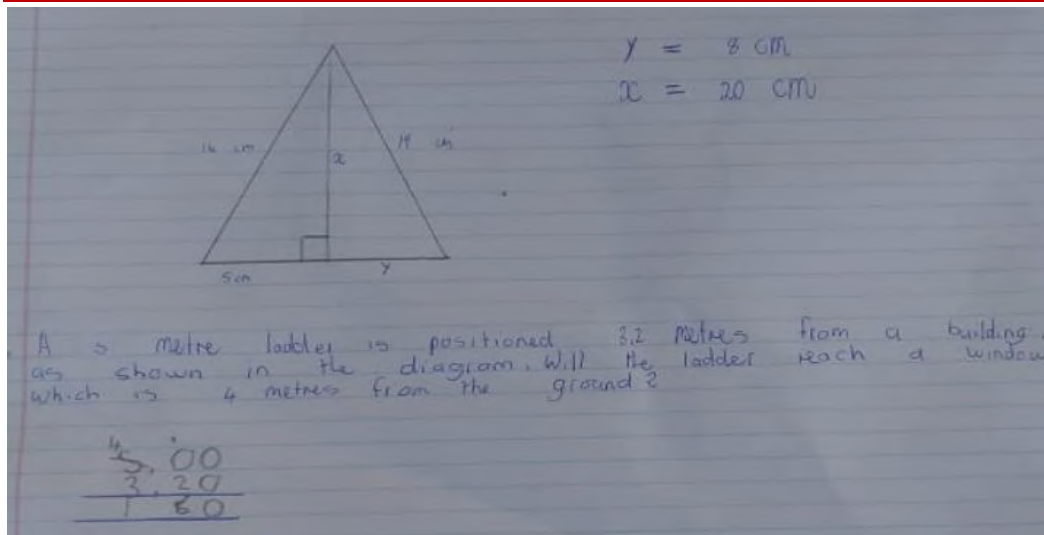 y = 8 cm
x = 20 cm
16 cm
x
19 cm
5cm
y
A 5 metre ladder is positioned 3.2 metres from a building.
as shown in the diagram. Will the ladder reach a window
which is 4 metres from the ground?
4
5.00
3.20
1 80